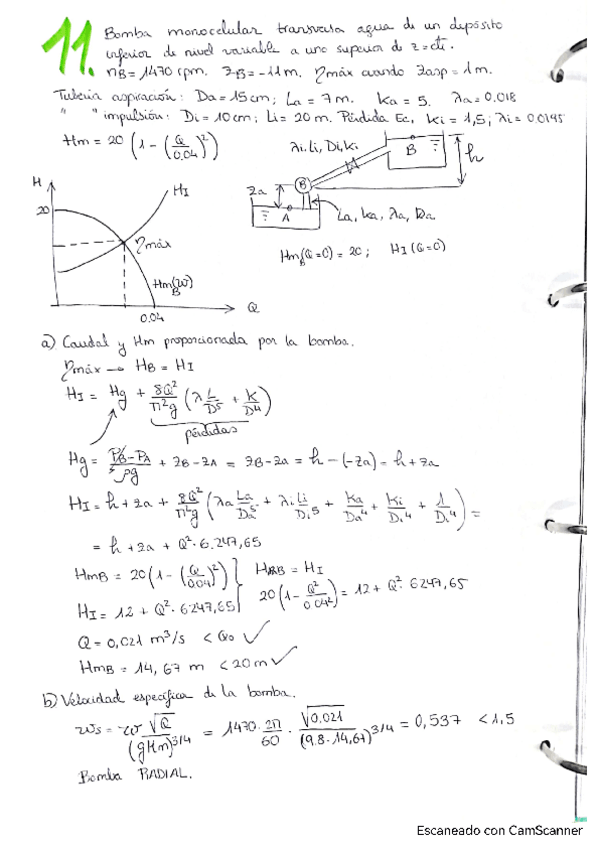 11.
Bomba monocelular transvasa agua de un depósito
inferior de nivel variable a uno superior de z=cte.
nB=1470 rpm. zB=-11m. ηmáx cuando zasp=1m.
Tubería aspiración: Da=15cm; La=7m. Ka=5. λa=0,018
" " impulsión: Di=10cm; Li=20m. Pérdida Ec, Ki=1,5; λi=0,0145
Hm=20(1-(Q/0.04)²)
λi,Li,Di,Ki
B
h
za
B
A
La, ka, λa, Da
H
20
HI
ηmáx
HmB(w)
0.04
Q
HmB(Q=0)=20; HI(Q=0)
a) Caudal y Hm proporcionada por la bomba.
ηmáx → HB=HI
HI = Hg + 8Q²/π²g (λ L/D⁵ + K/D⁴)
pérdidas
Hg = PB-PA/ρg + zB-zA = zB-za = h-(-za) = h+za
HI = h+za + 8Q²/π²g (λa La/Da⁵ + λi Li/Di⁵ + Ka/Da⁴ + Ki/Di⁴ + 1/Di⁴) =
= h+za+Q²·6.247,65
HmB = 20(1-(Q/0.04)²)
HI = 12 + Q²·6247,65
HmB = HI
20(1-Q²/0.04²) = 12 + Q²·6247,65
Q = 0,021 m³/s < Q0 ✓
HmB = 14,67 m < 20m ✓
b) Velocidad específica de la bomba.
ws = w √Q/(gHm)³/⁴ = 1470·2π/60 · √0,021/(9.8·14,67)³/⁴ = 0,537 < 1,5
Bomba RADIAL.
Escaneado con CamScanner